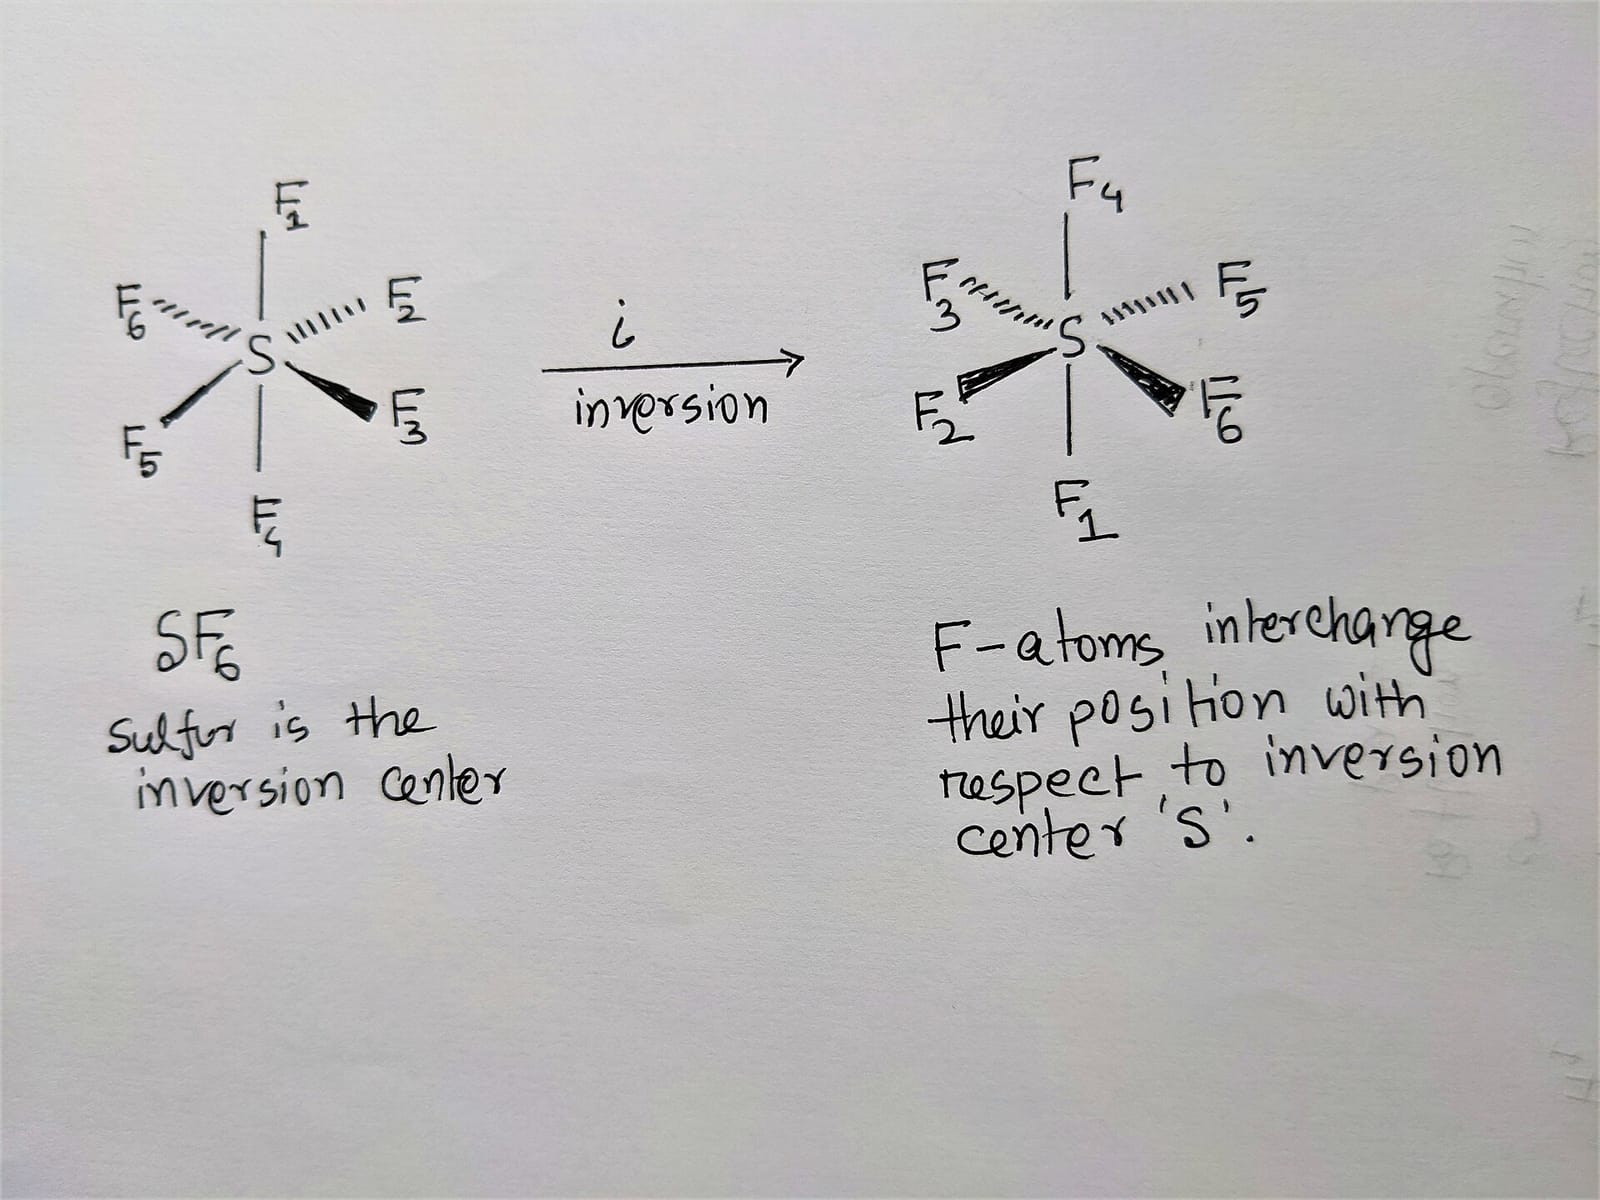 F1
F6
F2
S
F5
F3
F4
i
inversion
F4
F3
F5
S
F2
F6
F1
SF6
Sulfur is the
inversion center
F-atoms interchange
their position with
respect to inversion
center 'S'.